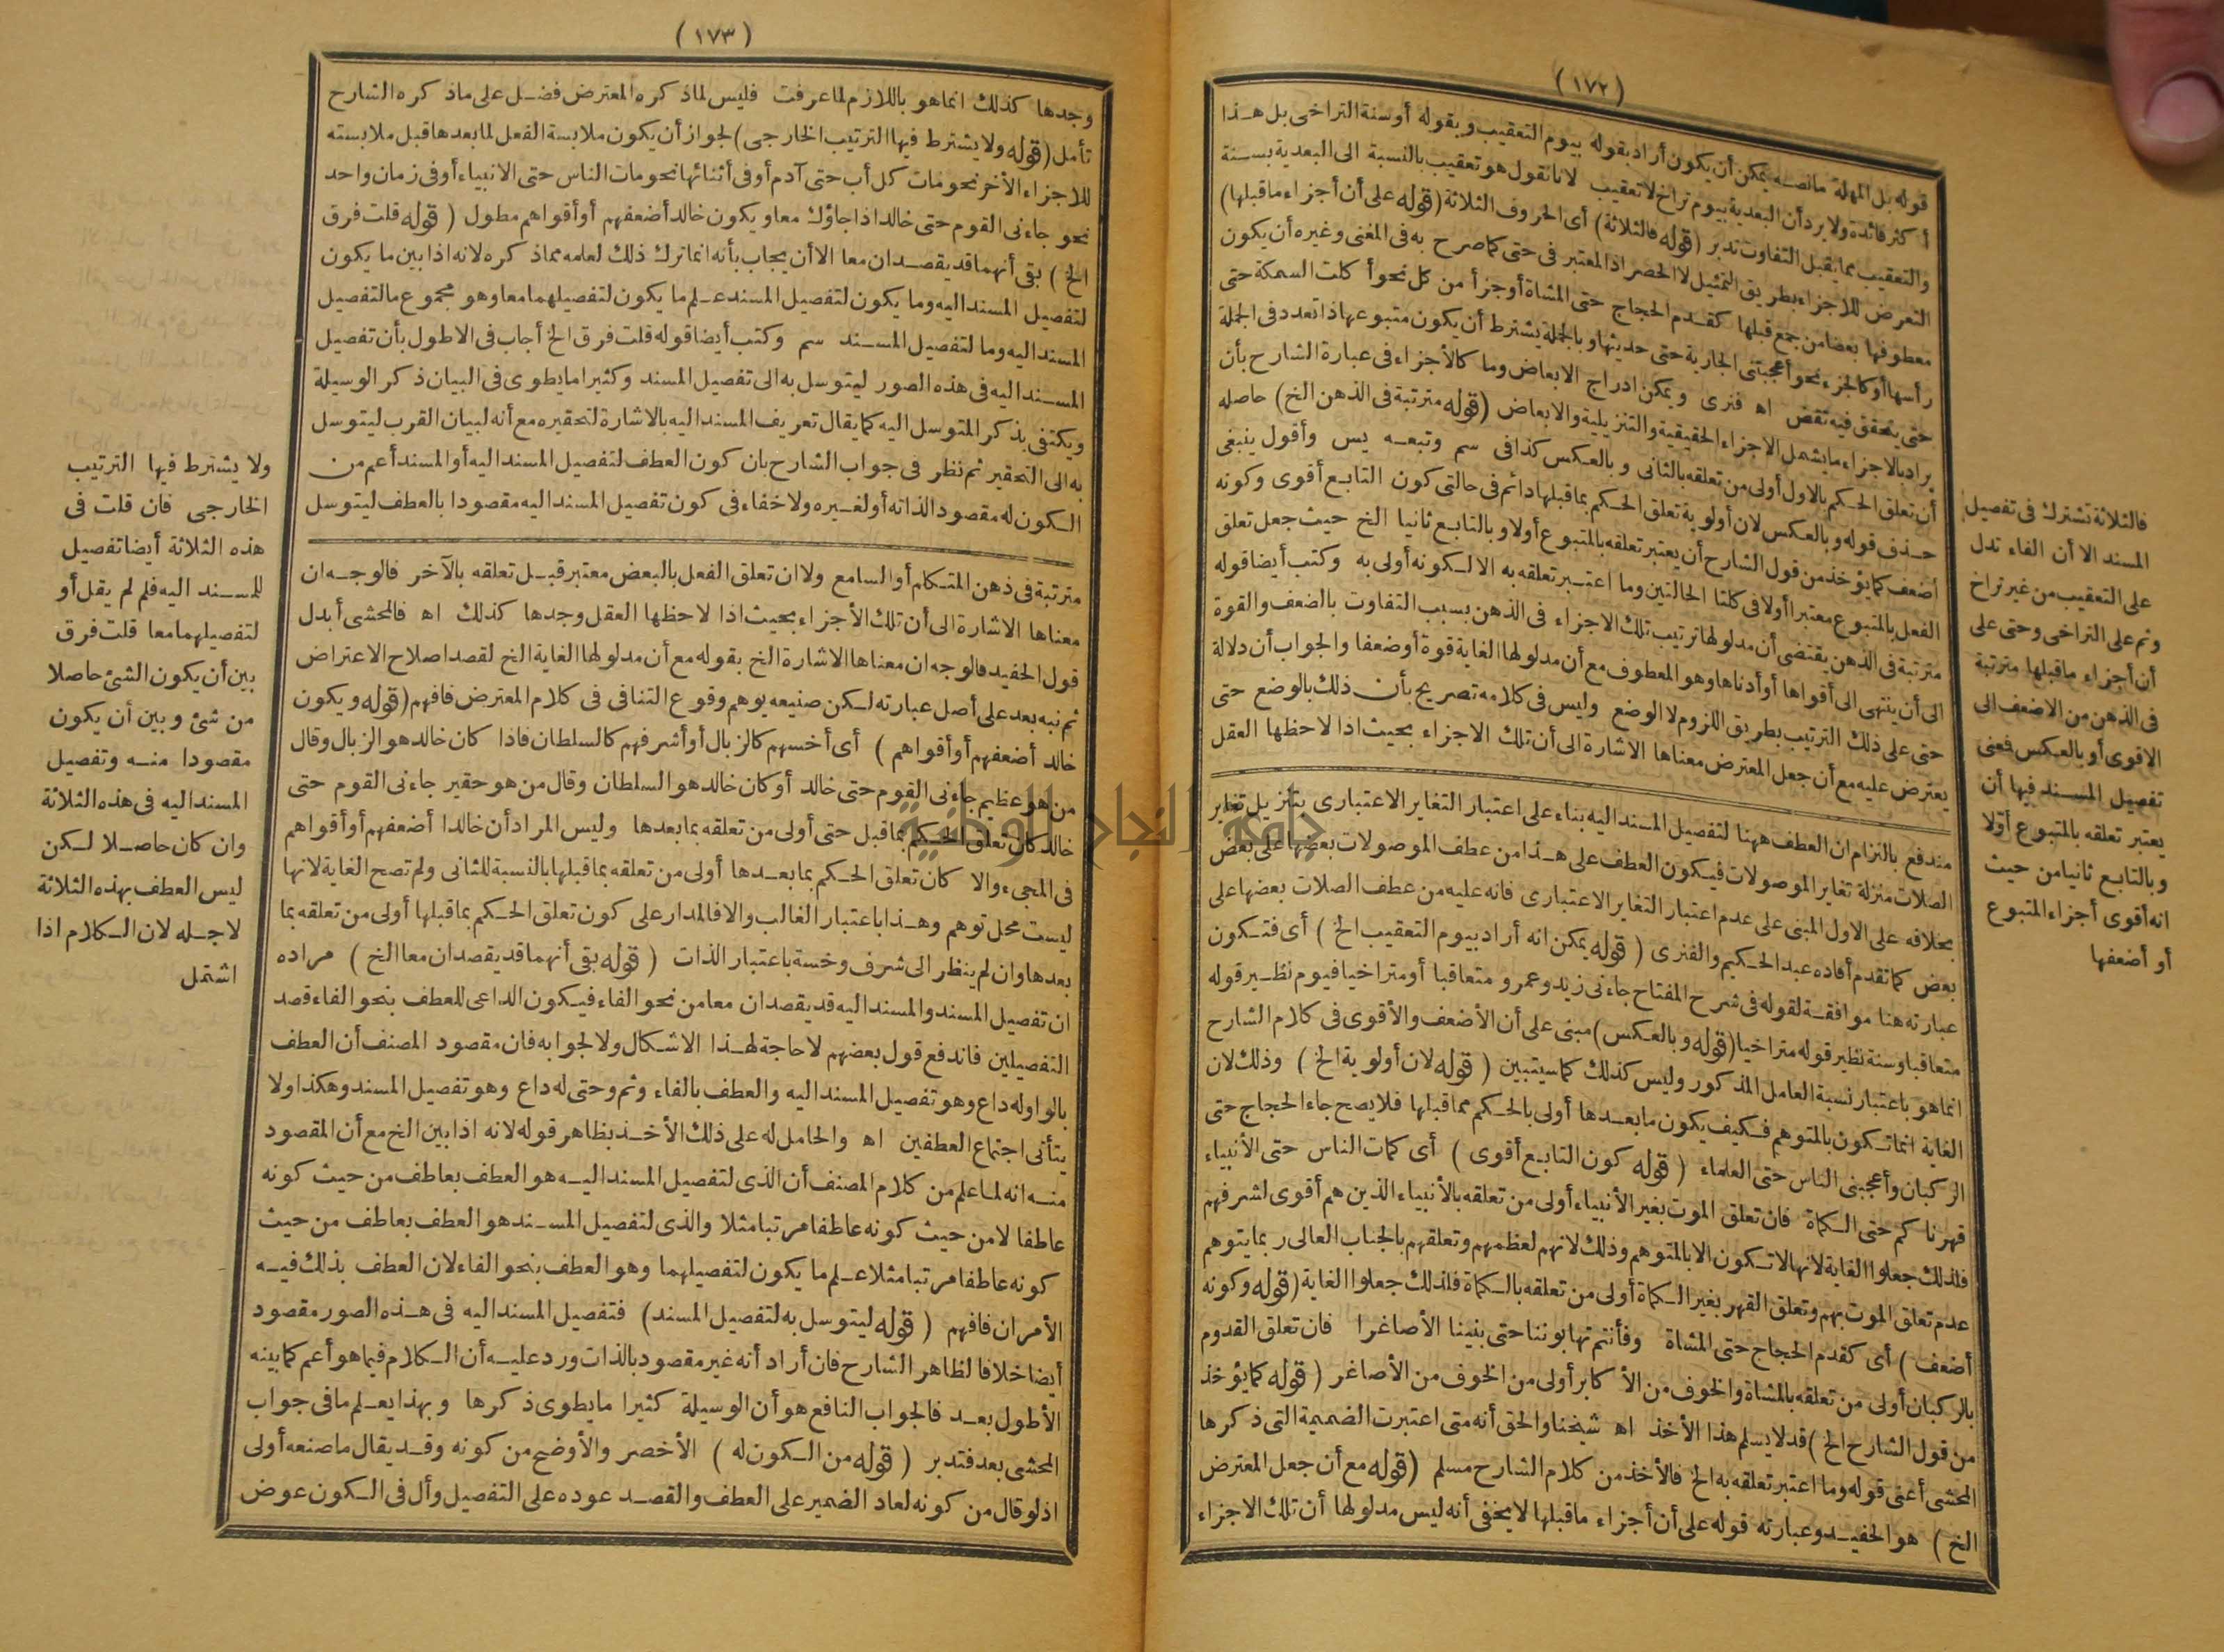 (١٧٢)
قوله بل المهلة مانصه يمكن أن يكون أراد بقوله بيوم التعقيب وبقوله أو سنة التراخى بل هذا
أكثر فائدة ولا يرد أن البعدية بيوم تراخ لا تعقيب لانا نقول هو تعقيب بالنسبة الى البعدية بسنة
والتعقيب مما يقبل التفاوت تدبر (قوله فالثلاثة) أى الحروف الثلاثة (قوله على أن أجزاء ما قبلها)
التعرض للاجزاء بطريق التمثيل لا الحصر اذ المعتبر فى حتى كما صرح به فى المغنى وغيره أن يكون
معطوفها بعضا من جمع قبلها كقدم الحجاج حتى المشاة أو جزأ من كل نحو أكلت السمكة حتى
رأسها أو كالجزء نحو أعجبتنى الجارية حتى حديثها وبالجملة يشترط أن يكون متبوعها ذا تعدد فى الجملة
حتى يتحقق فيه تقض اه فنرى ويمكن ادراج الابعاض وما كالأجزاء فى عبارة الشارح بأن
يراد بالاجزاء ما يشمل الاجزاء الحقيقية والتنزيلية والابعاض (قوله مترتبة فى الذهن الخ) حاصله
أن تعلق الحكم بالاول أولى من تعلقه بالثانى وبالعكس كذا فى سم وتبعه يس وأقول ينبغى
حذف قوله وبالعكس لان أولوية تعلق الحكم بما قبلها دائم فى حالتى كون التابع أقوى وكونه
أضعف كما يؤخذ من قول الشارح أن يعتبر تعلقه بالمتبوع أولا وبالتابع ثانيا الخ حيث جعل تعلق
الفعل بالمتبوع معتبرا أولا فى كلتا الحالتين وما اعتبر تعلقه به الا لكونه أولى به وكتب أيضا قوله
مترتبة فى الذهن يقتضى أن مدلولها ترتيب تلك الاجزاء فى الذهن بسبب التفاوت بالضعف والقوة
الى أن ينتهى الى أقواها أو أدناها وهو المعطوف مع أن مدلولها الغاية قوة أو ضعفا والجواب أن دلالة
حتى على ذلك الترتيب بطريق اللزوم لا الوضع وليس فى كلامه تصريح بأن ذلك بالوضع حتى
يعترض عليه مع أن جعل المعترض معناها الاشارة الى أن تلك الاجزاء بحيث اذا لاحظها العقل
مندفع بالتزام ان العطف ههنا لتفصيل المسند اليه بناء على اعتبار التغاير الاعتبارى بتنزيل تغاير
الصلات منزلة تغاير الموصولات فيكون العطف على هذا من عطف الموصولات بعضها على بعض
بخلافه على الاول المبنى على عدم اعتبار التغاير الاعتبارى فانه عليه من عطف الصلات بعضها على
بعض كما تقدم أفاده عبد الحكيم والفنرى (قوله يمكن انه أراد بيوم التعقيب الخ) أى فتكون
عبارته هنا موافقة لقوله فى شرح المفتاح جاءنى زيد وعمرو متعاقبا أو متراخيا فيوم نظير قوله
متعاقبا وسنة نظير قوله متراخيا (قوله وبالعكس) مبنى على أن الأضعف والأقوى فى كلام الشارح
انما هو باعتبار نسبة العامل المذكور وليس كذلك كما سيتبين (قوله لان أولوية الخ) وذلك لان
الغاية انما تكون بالمتوهم فكيف يكون ما بعدها أولى بالحكم مما قبلها فلا يصح جاء الحجاج حتى
الركبان وأعجبنى الناس حتى العلماء (قوله كون التابع أقوى) أى كمات الناس حتى الأنبياء
قهرناكم حتى الكماة فان تعلق الموت بغير الأنبياء أولى من تعلقه بالأنبياء الذين هم أقوى لشرفهم
فلذلك جعلوا الغاية لانها لا تكون الا بالمتوهم وذلك لانهم لعظمهم وتعلقهم بالجناب العالى ربما يتوهم
عدم تعلق الموت بهم وتعلق القهر بغير الكماة أولى من تعلقه بالكماة فلذلك جعلوا الغاية (قوله وكونه
أضعف) أى كقدم الحجاج حتى المشاة وفأنتم تهابوننا حتى بنينا الأصاغرا فان تعلق القدوم
بالركبان أولى من تعلقه بالمشاة والخوف من الأكابر أولى من الخوف من الأصاغر (قوله كما يؤخذ
من قول الشارح الخ) قد لا يسلم هذا الأخذ اه شيخنا والحق أنه متى اعتبرت الضميمة التى ذكرها
المحشى أعنى قوله وما اعتبر تعلقه به الخ فالأخذ من كلام الشارح مسلم (قوله مع أن جعل المعترض
الخ) هو الحفيد وعبارته قوله على أن أجزاء ما قبلها لا يخفى أنه ليس مدلولها أن تلك الاجزاء
فالثلاثة تشترك فى تفصيل
المسند الا أن الفاء تدل
على التعقيب من غير تراخ
وثم على التراخى وحتى على
أن أجزاء ما قبلها مترتبة
فى الذهن من الاضعف الى
الاقوى أو بالعكس فمعنى
تفصيل المسند فيها أن
يعتبر تعلقه بالمتبوع أولا
وبالتابع ثانيا من حيث
انه أقوى أجزاء المتبوع
أو أضعفها
(١٧٣)
وجدها كذلك انما هو باللازم لما عرفت فليس لما ذكره المعترض فضل على ما ذكره الشارح
تأمل (قوله ولا يشترط فيها الترتيب الخارجى) لجواز أن يكون ملابسة الفعل لما بعدها قبل ملابسته
للاجزاء الأخر نحو مات كل أب حتى آدم أو فى أثنائها نحو مات الناس حتى الانبياء أو فى زمان واحد
نحو جاءنى القوم حتى خالد اذا جاؤك معا ويكون خالد أضعفهم أو أقواهم مطول (قوله قلت فرق
الخ) بقى أنهما قد يقصدان معا الا أن يجاب بأنه انما ترك ذلك لعلمه مما ذكره لانه اذا بين ما يكون
لتفصيل المسند اليه وما يكون لتفصيل المسند علم ما يكون لتفصيلهما معا وهو مجموع ما لتفصيل
المسند اليه وما لتفصيل المسند سم وكتب أيضا قوله قلت فرق الخ أجاب فى الاطول بأن تفصيل
المسند اليه فى هذه الصور ليتوسل به الى تفصيل المسند وكثيرا ما يطوى فى البيان ذكر الوسيلة
ويكتفى بذكر المتوسل اليه كما يقال تعريف المسند اليه بالاشارة لتحقيره مع أنه لبيان القرب ليتوسل
به الى التحقير ثم نظر فى جواب الشارح بان كون العطف لتفصيل المسند اليه أو المسند أعم من
الكون له مقصودا لذاته أو لغيره ولا خفاء فى كون تفصيل المسند اليه مقصودا بالعطف ليتوسل
مترتبة فى ذهن المتكلم أو السامع ولا ان تعلق الفعل بالبعض معتبر قبل تعلقه بالآخر فالوجه ان
معناها الاشارة الى أن تلك الأجزاء بحيث اذا لاحظها العقل وجدها كذلك اه فالمحشى أبدل
قول الحفيد فالوجه ان معناها الاشارة الخ بقوله مع أن مدلولها الغاية الخ لقصد اصلاح الاعتراض
ثم نبه بعد على أصل عبارته لكن صنيعه يوهم وقوع التنافى فى كلام المعترض فافهم (قوله ويكون
خالد أضعفهم أو أقواهم) أى أخسهم كالزبال أو أشرفهم كالسلطان فاذا كان خالد هو الزبال وقال
من هو عظيم جاءنى القوم حتى خالد أو كان خالد هو السلطان وقال من هو حقير جاءنى القوم حتى
خالد كان تعلق الحكم بما قبل حتى أولى من تعلقه بما بعدها وليس المراد أن خالدا أضعفهم أو أقواهم
فى المجىء والا كان تعلق الحكم بما بعدها أولى من تعلقه بما قبلها بالنسبة للثانى ولم تصح الغاية لانها
ليست محل توهم وهذا باعتبار الغالب والا فالمدار على كون تعلق الحكم بما قبلها أولى من تعلقه بما
بعدها وان لم ينظر الى شرف وخسة باعتبار الذات (قوله بقى أنهما قد يقصدان معا الخ) مراده
ان تفصيل المسند والمسند اليه قد يقصدان معا من نحو الفاء فيكون الداعى للعطف بنحو الفاء قصد
التفصيلين فاندفع قول بعضهم لا حاجة لهذا الاشكال ولا لجوابه فان مقصود المصنف أن العطف
بالواو له داع وهو تفصيل المسند اليه والعطف بالفاء وثم وحتى له داع وهو تفصيل المسند وهكذا ولا
يتأتى اجتماع العطفين اه والحامل له على ذلك الأخذ بظاهر قوله لانه اذا بين الخ مع أن المقصود
منه انه لما علم من كلام المصنف أن الذى لتفصيل المسند اليه هو العطف بعاطف من حيث كونه
عاطفا لا من حيث كونه عاطفا مرتبا مثلا والذى لتفصيل المسند هو العطف بعاطف من حيث
كونه عاطفا مرتبا مثلا علم ما يكون لتفصيلهما وهو العطف بنحو الفاء لان العطف بذلك فيه
الأمران فافهم (قوله ليتوسل به لتفصيل المسند) فتفصيل المسند اليه فى هذه الصور مقصود
أيضا خلافا لظاهر الشارح فان أراد أنه غير مقصود بالذات ورد عليه أن الكلام فيما هو أعم كما بينه
الأطول بعد فالجواب النافع هو أن الوسيلة كثيرا ما يطوى ذكرها وبهذا يعلم ما فى جواب
المحشى بعد فتدبر (قوله من الكون له) الأخصر والأوضح من كونه وقد يقال ما صنعه أولى
اذ لو قال من كونه لعاد الضمير على العطف والقصد عوده على التفصيل وأل فى الكون عوض
ولا يشترط فيها الترتيب
الخارجى فان قلت فى
هذه الثلاثة أيضا تفصيل
للمسند اليه فلم لم يقل أو
لتفصيلهما معا قلت فرق
بين أن يكون الشئ حاصلا
من شئ وبين أن يكون
مقصودا منه وتفصيل
المسند اليه فى هذه الثلاثة
وان كان حاصلا لكن
ليس العطف بهذه الثلاثة
لاجله لان الكلام اذا
اشتمل
جامعة النجاح الوطنية